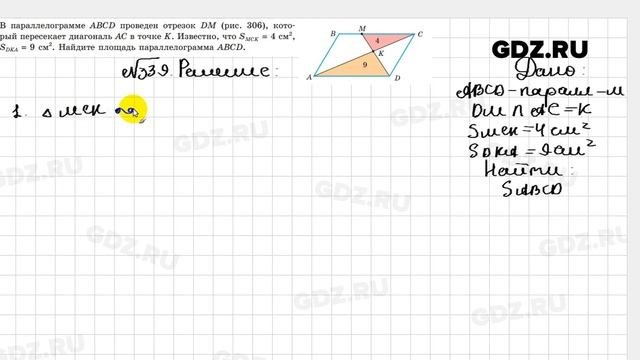 В параллелограмме ABCD проведен отрезок DM (рис. 306), кото-
рый пересекает диагональ AC в точке K. Известно, что S_MCK = 4 см²,
S_DKA = 9 см². Найдите площадь параллелограмма ABCD.
B M C
4
K
9
A D
GDZ.RU
№339. Решение:
Дано:
ABCD-паралл-м
DM ∩ AC = K
Sмск = 4 см²
SDKA = 9 см²
Найти:
SABCD
1. △ МСК ∾
GDZ.RU
GDZ.RU
GDZ.RU
GDZ.RU
GDZ.RU
GDZ.RU